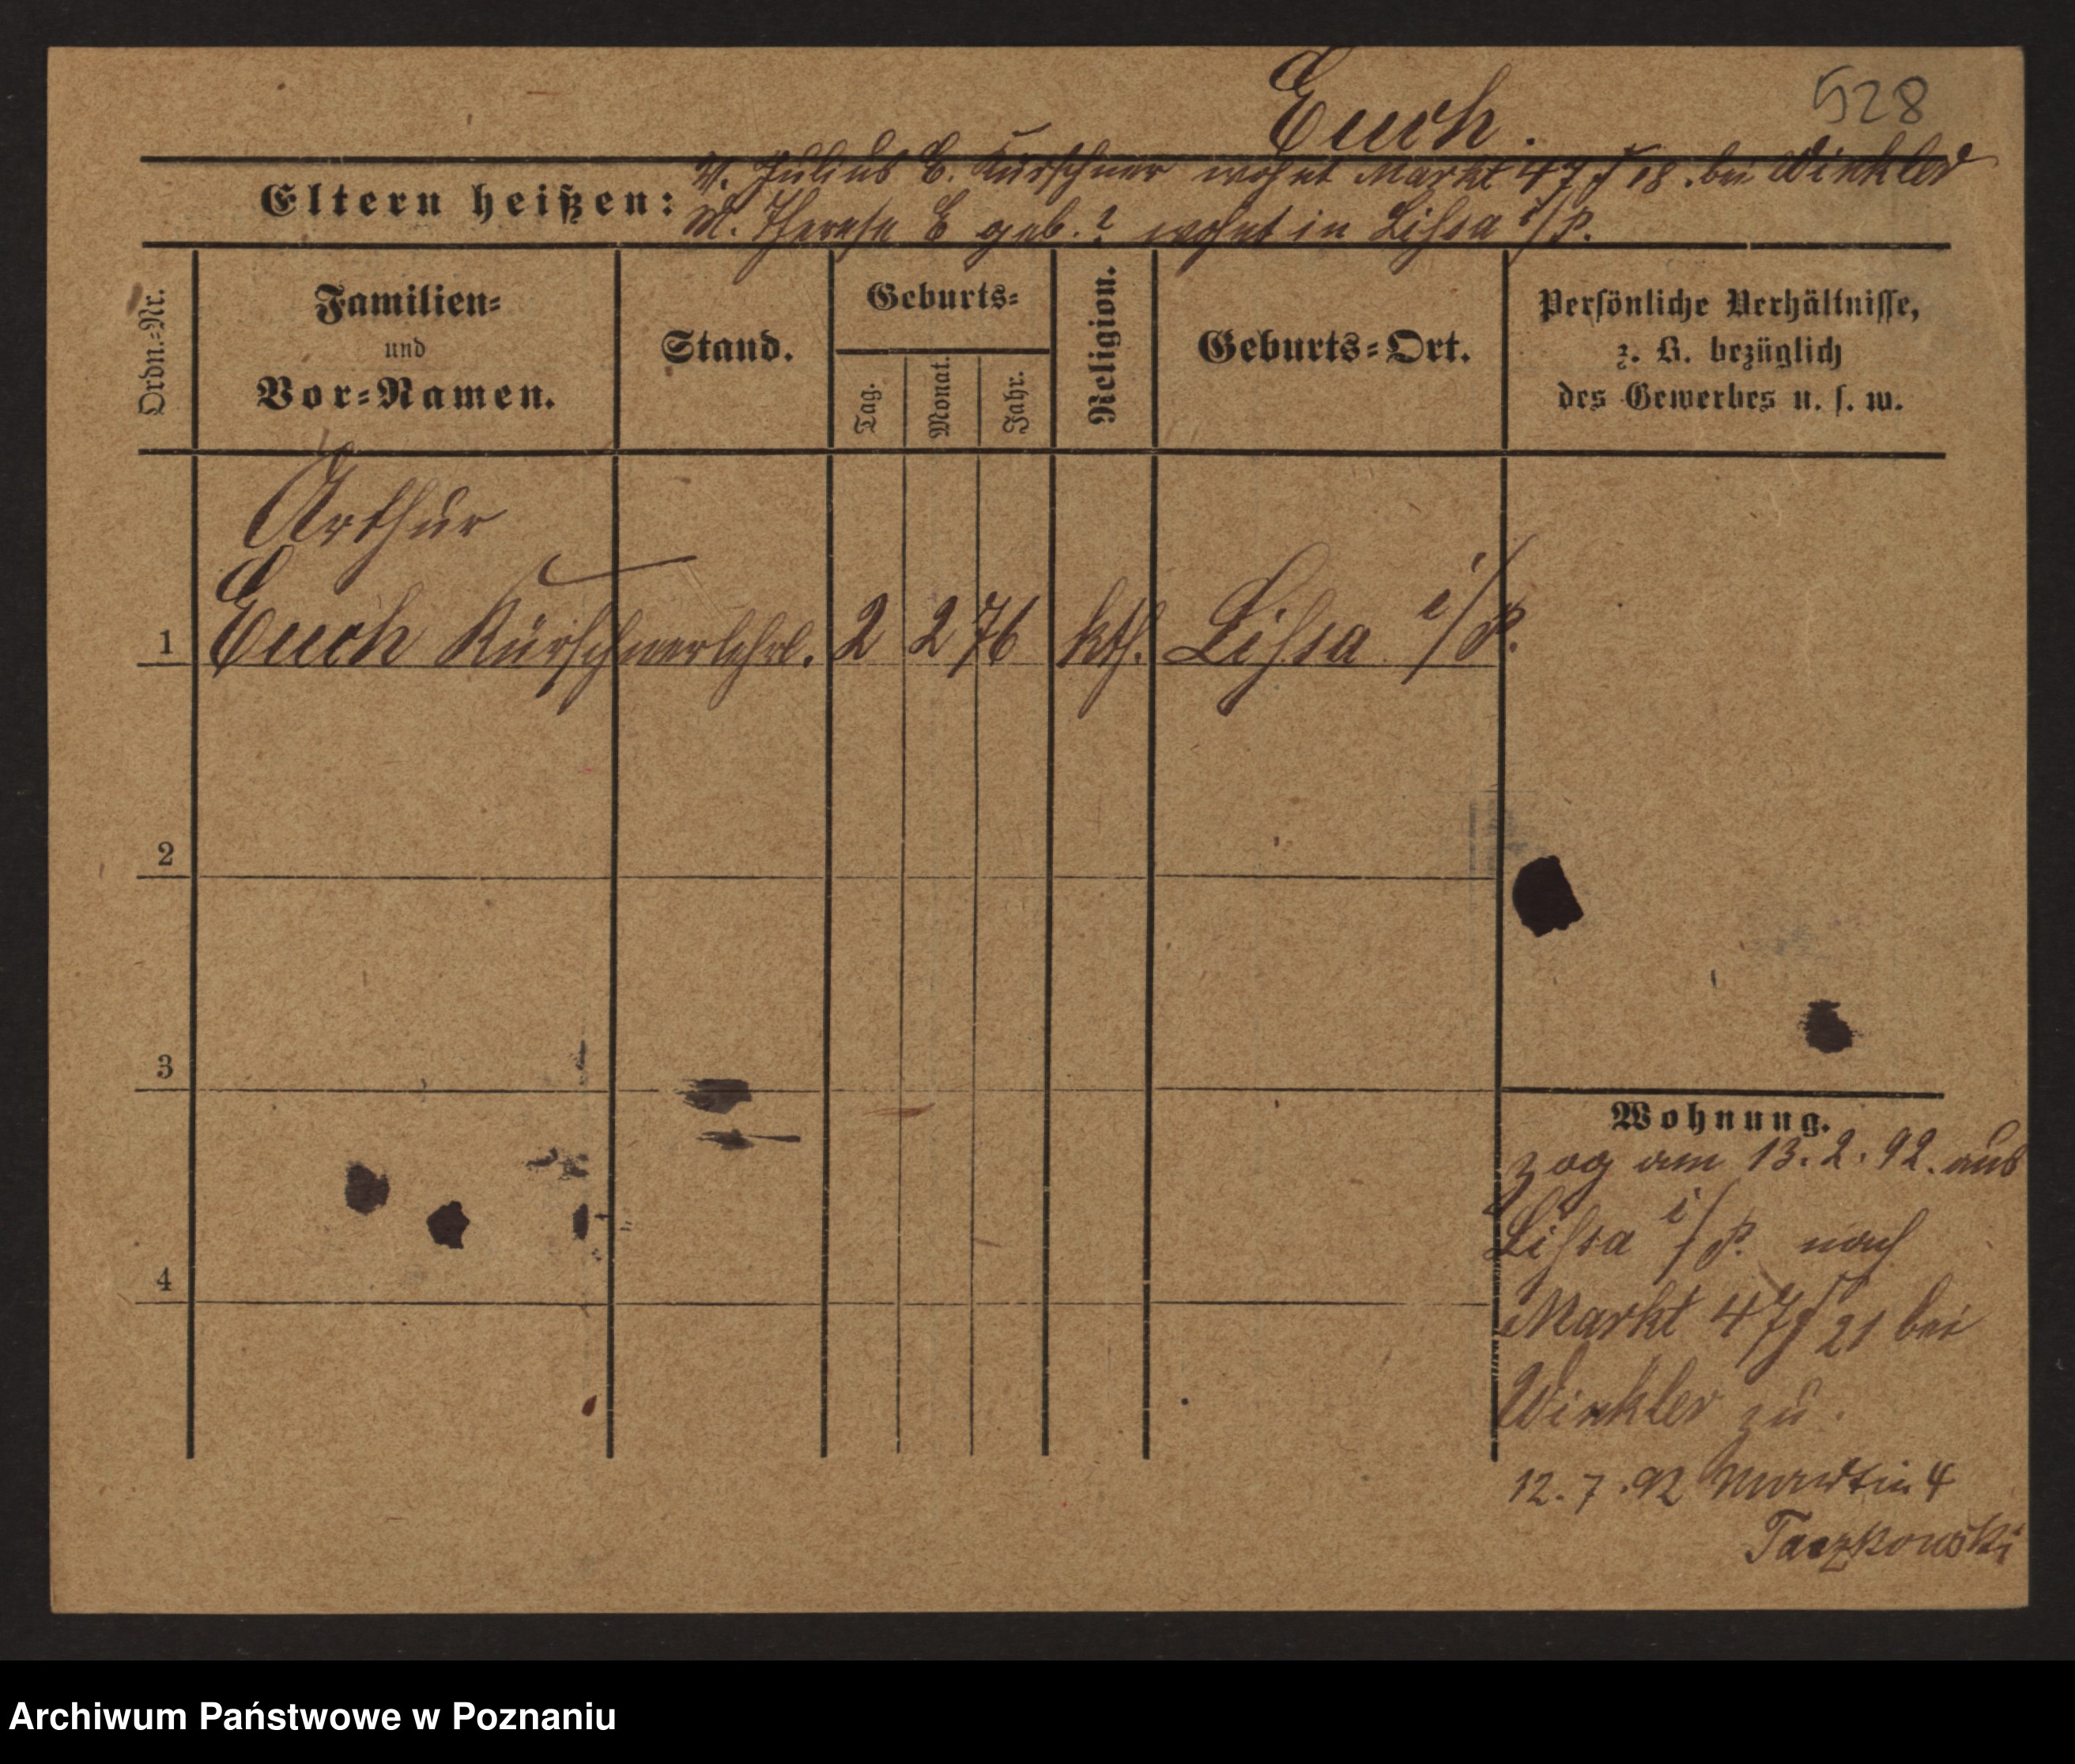 528
Euch.
Eltern heißen:
V. Julius E. Kürschner wohnt Markt 47/18. bei Winkler
M. Therese E geb.? wohnt in Lissa i/P.
Ordn.=Nr.
Familien=
und
Vor=Namen.
Stand.
Geburts=
Tag.
Monat.
Jahr.
Religion.
Geburts=Ort.
Persönliche Verhältnisse,
z. B. bezüglich
des Gewerbes u. s. w.
Arthur
1 Euch Kürschnerlehrl. 2 2 76 kth. Lissa i/P.
2
3
4
Wohnung.
zog am 13. 2. 92. aus
Lissa i/P. nach
Markt 47/21 bei
Winkler zu.
12. 7. 92 Martin 4
Taczkowski
Archiwum Państwowe w Poznaniu